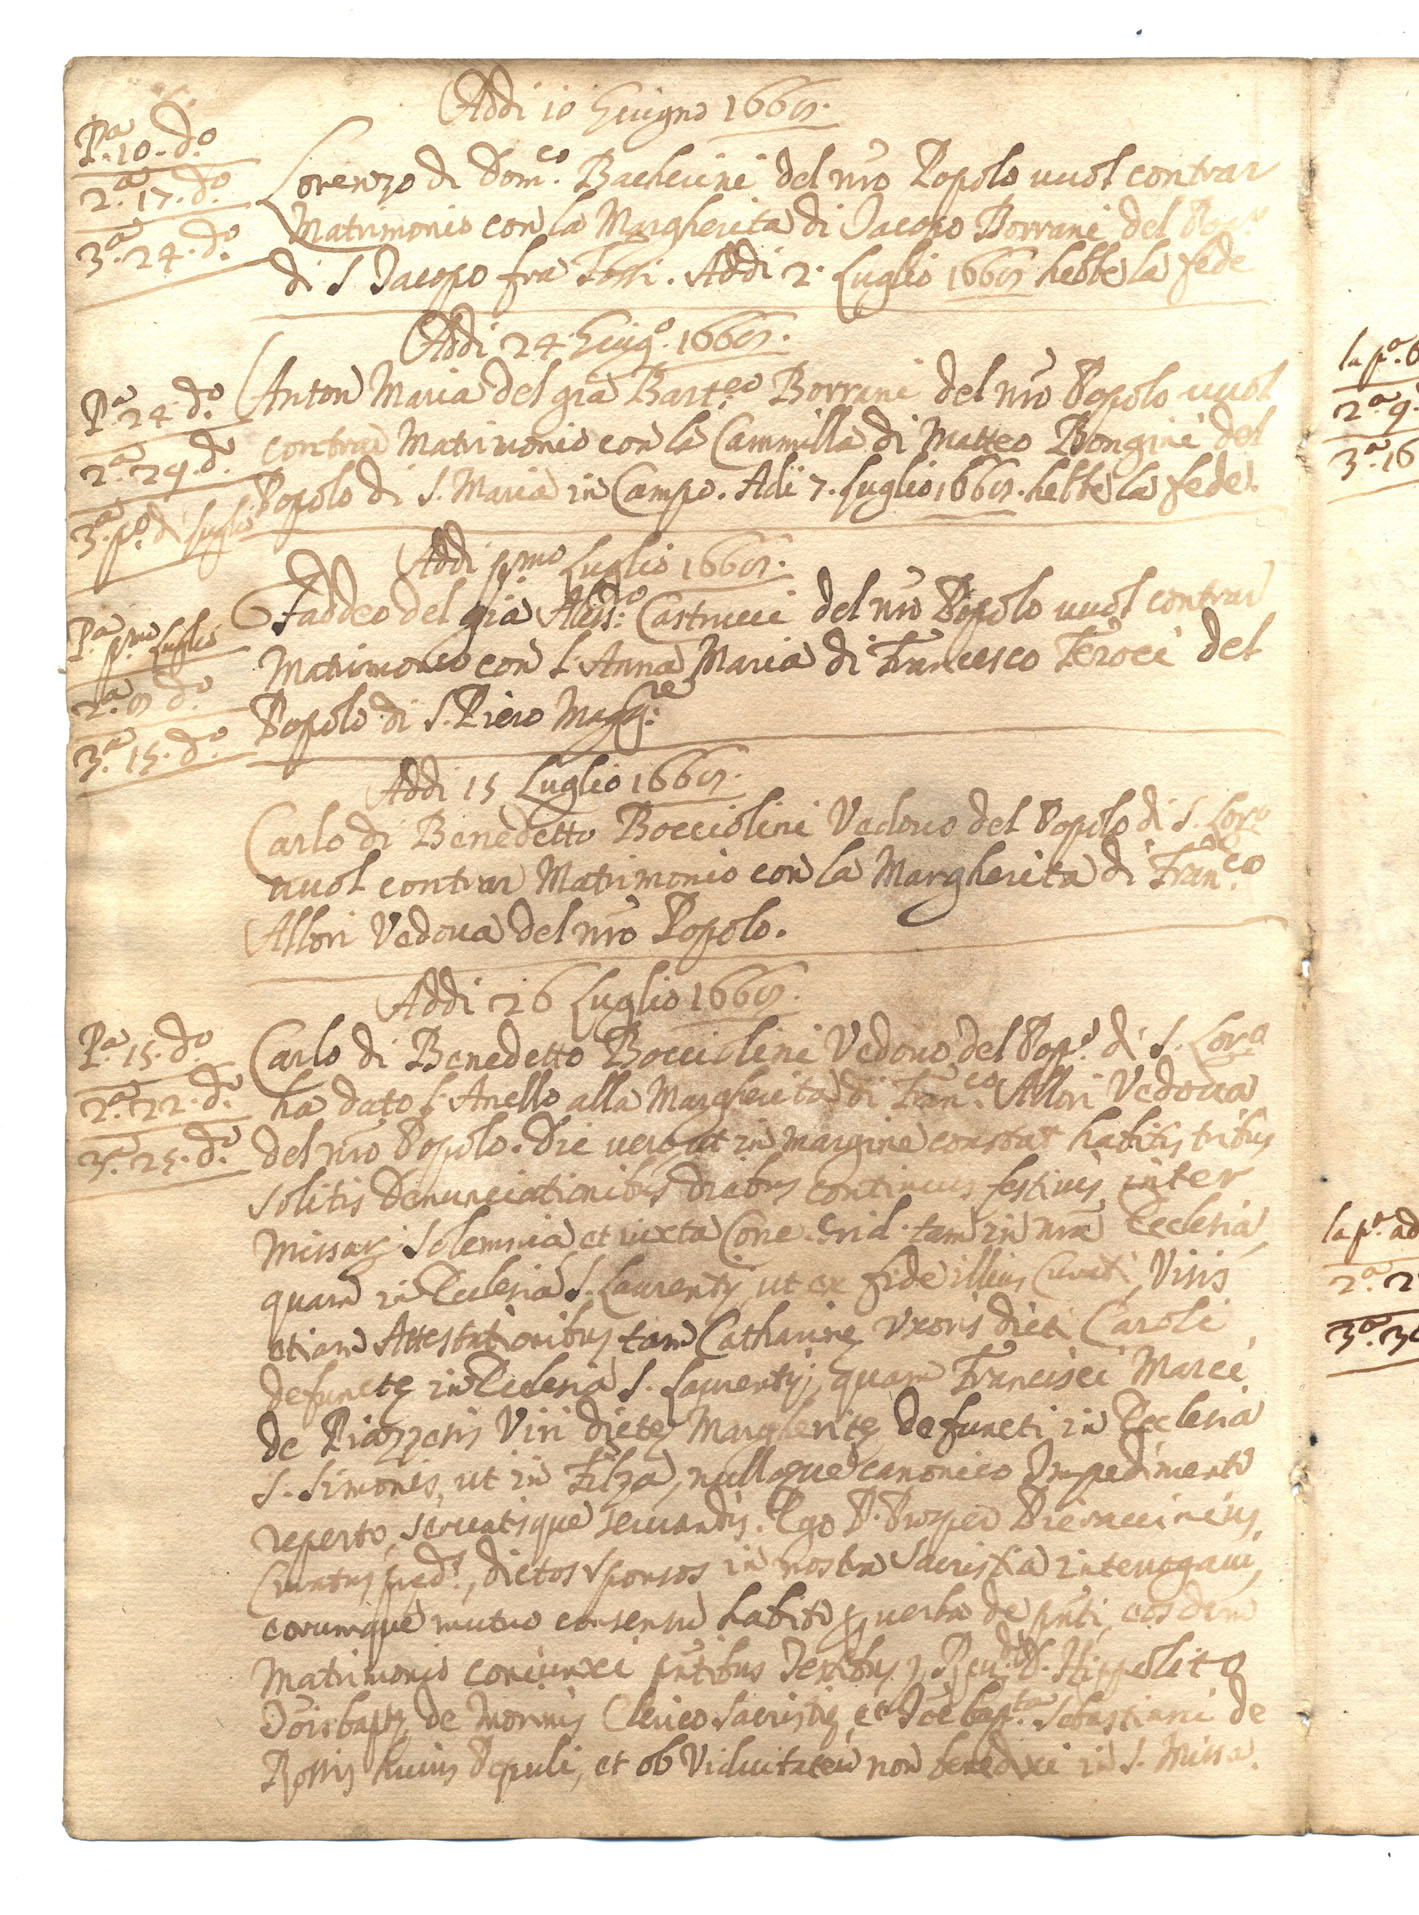 Addi 10 Giugno 1668.
Pa. 10. do
2a. 17. do
3a. 24. do
Lorenzo di Domco. Bacherini del nro Popolo vuol contrar
Matrimonio con la Margherita di Jacopo Borrani del
di S Jacopo fra Fossi. Addi 2. Luglio 1668 hebbe la fede
Addi 24 Giugo. 1668.
Pa. 24. do
2a. 29. do
3a. po. di Luglio
Anton Maria del gia Barteo Borrani del nro Popolo vuol
contrar Matrimonio con la Cammilla di Matteo Bongini del
Popolo di S. Maria in Campo. Adi 7. Luglio 1668. hebbe la fede.
Addi pmo Luglio 1668.
Pa. pmo Luglio
2a. 8 do
3a. 15. do
Taddeo del gia Aless.o Castrucci del nro Popolo vuol contrar
Matrimonio con l'Anna Maria di Francesco Feroci del
Popolo di S. Piero Magg.re
Addi 15 Luglio 1668.
Carlo di Benedetto Bocciolini Vedovo del Popolo di S. Loro
vuol contrar Matrimonio con la Margherita di Franco.
Allori Vedova del nro Popolo.
Addi 26 Luglio 1668.
Pa. 15. do
2a. 22. do
3a. 25. do
Carlo di Benedetto Bocciolini Vedovo del Popo. di S. Loro
ha dato l'Anello alla Margherita di Franco. Allori Vedova
del nro Popolo. Die vero ut in margine constat habitis tribus
solitis denunciationibus diebus continuis festivis inter
Missar Solemnia et iuxta Conc. Trid. tam in nra Ecclesia
quam in Ecclesia S. Laurentij ut ex fide illius Curati, Visis
etiam Attestationibus tam Catharine Uxoris dicti Caroli
defuncte in Ecclesia S. Laurentij, quam Francisci Marci
de Piazzesis Viri dicte Margherite defuncti in Ecclesia
S. Simonis, ut in Filza, nulloque canonico Impedimento
reperto, servatisque servandis. Ego P. Prosper Pieruccinius,
Curatus pred., dictos sponsos in nostra Sacristia interrogavi,
eorumque mutuo consensu habito p verba de pnti, eosdem
Matrimonio coniunxi pntibus Testibus, Reu. D. Hippolito
Joisbapte de Clerico Sacristie, et Joe bapta. Sebastiani de
Rossis huius Populi, et ob Viduitatem non benedixi in S. Missa.
la pa.
2a. 9.
3a. 16
la pa. ad
2a. 2
3a. 30